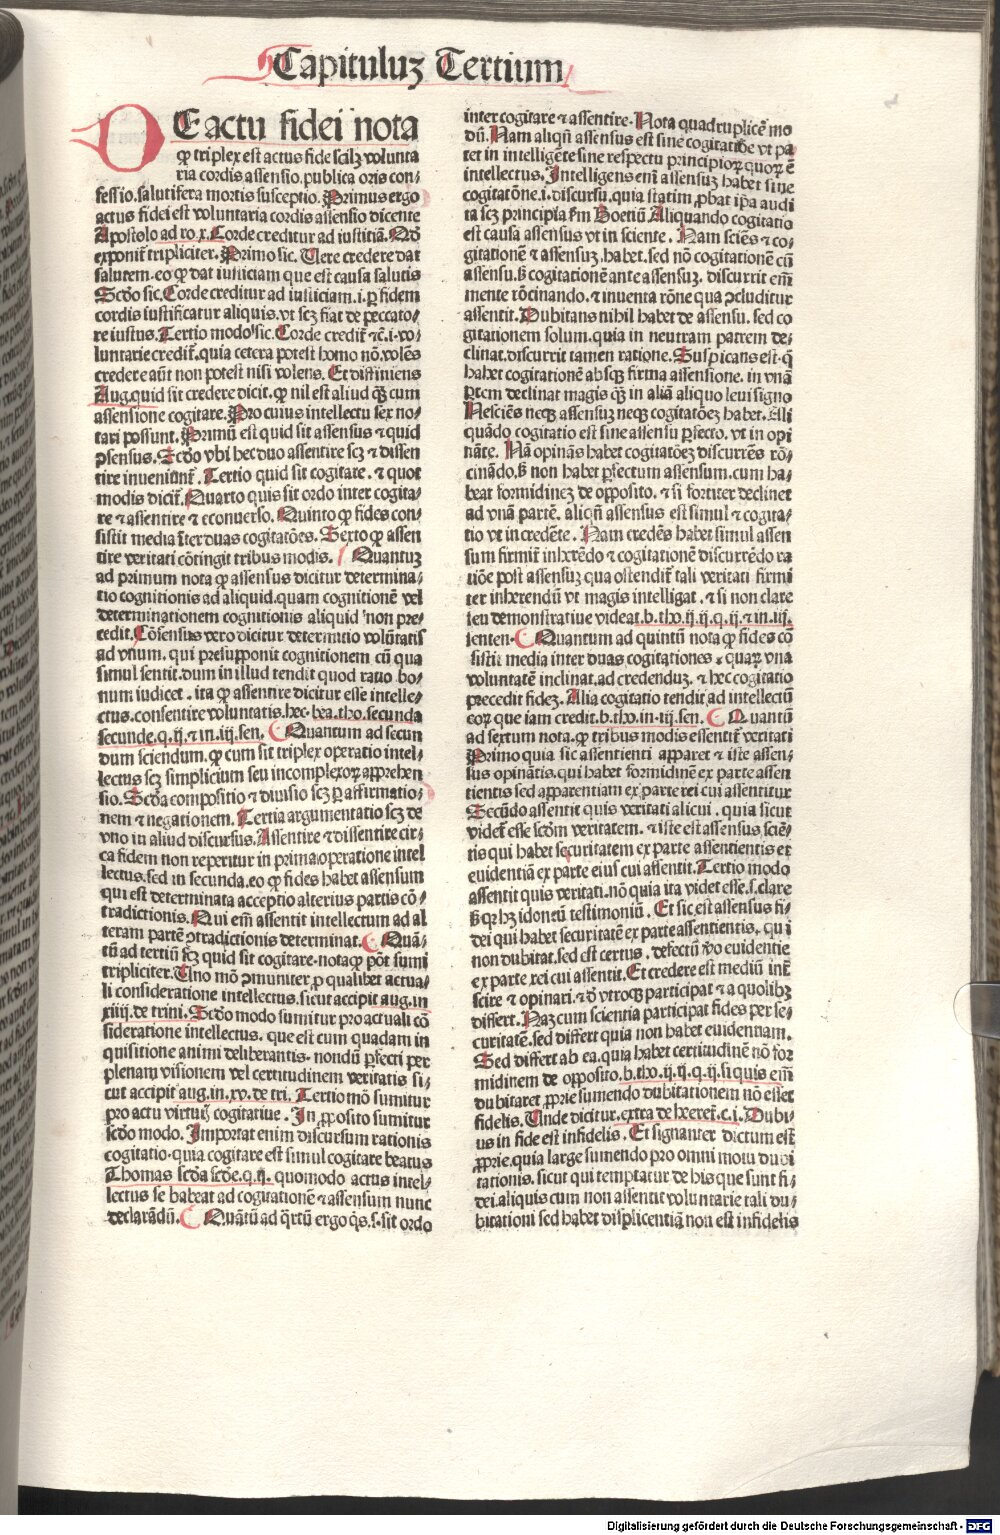 Capituluꝫ Tertium
DE actu fidei nota
ꝙ triplex est actus fide scilꝫ volunta
ria cordis assensio.publica oris con⸗
fessio.salutifera mortis susceptio. Primus ergo
actus fidei est voluntaria cordis assensio dicente
Apostolo ad ro.x. Corde creditur ad iustitiā.
exponit̄ tripliciter. Primo sic. Uere credere dat
salutem.eo ꝙ dat iusticiam que est causa salutis
Scďo sic. Corde creditur ad iusticiam.i.ꝑ fidem
cordis iustificatur aliquis.vt scꝫ fiat de peccato⸗
re iustus. Tertio modo sic. Corde credit̄ ⁊c̄.i.vo⸗
luntarie credit̄.quia cetera potest homo nō.volēs
credere aūt non potest nisi volens. Et diffiniens
Aug.quid sit credere dicit. ꝙ nil est aliud qꝫ cum
assensione cogitare. Pro cuius intellectu sex no⸗
tari possunt. Primū est quid sit assensus ⁊ quid
ↄsensus. Scďo vbi hec duo assentire scꝫ ⁊ dissen
tire inveniunt̄. Tertio quid sit cogitare.⁊ quot
modis dicit̄. Quarto quis sit ordo inter cogita⸗
re ⁊ assentire ⁊ econuerso. Quinto ꝙ fides con⸗
sistit media īter duas cogitatōes. Sexto ꝙ assen
tire veritati cōtingit tribus modis. Quantuꝫ
ad primum nota ꝙ assensus dicitur determina⸗
tio cognitionis ad aliquid.quam cognitionē vel
determinationem cognitionis aliquid non pre⸗
cedit. Cōsensus vero dicitur determitio volūtatis
ad vnum. qui presupponit cognitionem cū qua
simul sentit.dum in illud tendit quod ratio bo⸗
num iudicet. ita ꝙ assentire dicitur esse intelle⸗
ctus.consentire voluntatis.hec.bea.tho.secunda
secunde.q.ij.⁊ in.iij.sen. Quantum ad secun
dum sciendum.ꝙ cum sit triplex operatio intel⸗
lectus scꝫ simplicium seu incomplexoꝝ apprehen
sio. Scďa compositio ⁊ diuisio scꝫ ꝑ affirmatio⸗
nem ⁊ negationem. Tertia argumentatio scꝫ de
vno in aliud discursus. Assentire ⁊ dissentire cir⸗
ca fidem non reperitur in prima operatione intel
lectus.sed in secunda.eo ꝙ fides habet assensum
qui est determinata acceptio alterius partis cō⸗
tradictionis. Qui em̄ assentit intellectum ad al
teram partē ↄtradictionis determinat. Quā⸗
tū ad tertiū scꝫ quid sit cogitare.nota ꝙ pōt sumi
tripliciter. Uno mō ↄmuniter ꝓ qualibet actua⸗
li consideratione intellectus.sicut accipit aug.in
xiiij.de trini. Scďo modo sumitur pro actuali cō
sideratione intellectus. que est cum quadam in
quisitione animi deliberantis. nondū ꝑfecti per
plenam visionem vel certitudinem veritatis si⸗
cut accipit aug.in.xv.de tri. Tertio mō sumitur
pro actu virtutꝭ cogitatiue. In ꝓposito sumitur
scďo modo. Importat enim discursum rationis
cogitatio.quia cogitare est simul cogitare beatus
Thomas scďa scďe.q.ij. quomodo actus intel⸗
lectus se habeat ad cogitationē ⁊ assensum nunc
declarādū. Quātū ad q̄rtū ergo q̄s.s.sit ordo
inter cogitare ⁊ assentire. Nota quadruplicē mo
dū. Nam aliqn̄ assensus est sine cogitatiōe vt pa
tet in intelligēte sine respectu principioꝝ quoꝝ ē
intellectus. Intelligens em̄ assensuꝫ habet sine
cogitatōne.i.discursu.quia statim ꝓbat ip̄a audi
ta scꝫ principia ẜm Boetiū. Aliquando cogitatio
est causa assensus vt in sciente. Nam sciēs ⁊ co⸗
gitationē ⁊ assensuꝫ.habet.sed nō cogitationē cū
assensu.ꝫ cogitationē ante assensuꝫ. discurrit em̄
mente rōcinando.⁊ inuenta rōne qua ↄcluditur
assentit. Dubitans nihil habet de assensu. sed co
gitationem solum.quia in neutram partem de⸗
clinat.discurrit tamen ratione. Suspicans est.q̄
habet cogitationē absqꝫ firma assensione. in vnā
ꝑtem declinat magis qꝫ in aliā aliquo leui signo
Nesciēs neqꝫ assensuꝫ neqꝫ cogitatōeꝫ habet. Ali
quādo cogitatio est sine assensu ꝑfecto. vt in opi
nāte. Nā opināns habet cogitatōeꝫ discurrēs rō⸗
cinādo.ꝫ non habet ꝑfectum assensum.cum ha⸗
beat formidineꝫ de opposito. ⁊ si fortiter declinet
ad vnā partē. aliqn̄ assensus est simul ⁊ cogita⸗
tio vt in credēte. Nam credēs habet simul assen
sum firmit̄ inherēdo ⁊ cogitationē discurrēdo ra
tiōe post assensuꝫ qua ostendit̄ tali veritati firmi
ter inherendū vt magis intelligat. ⁊ si non clare
seu demonstratiue videat.b.tho.ij.ij.q.ij.⁊ in.iij.
senten. Quantum ad quintū nota ꝙ fides cō
sistit media inter duas cogitationes. quaꝝ vna
voluntatē inclinat.ad credenduꝫ.⁊ hec cogitatio
precedit fideꝫ. Alia cogitatio tendit ad intellectū
eoꝝ que iam credit.b.tho.in.iij.sen. Quantū
ad sextum nota.ꝙ tribus modis essentit̄ veritati
Primo quia sic assentienti apparet ⁊ iste assen⸗
sus opinātis.qui habet formidinē ex parte assen
tientis sed apparentiam ex parte rei cui assentitur
Secūdo assentit quis veritati alicui. quia sicut
videt̄ esse scďm veritatem. ⁊ iste est assensus sciē⸗
tis qui habet securitatem ex parte assentientis et
euidentiā ex parte eius cui assentit. Tertio modo
assentit quis veritati.nō quia ita videt esse.s.clare
ꝫ qꝛ hꝫ idoneū testimoniū. Et sic est assensus fi⸗
dei qui habet securitatē ex parte assentientis. qu i
non dubitat.sed est certus. defectū ꝟo euidentie
ex parte rei cui assentit. Et credere est mediū int̄
scire ⁊ opinari.⁊ ō vtroqꝫ participat ⁊ a quolibꝫ
differt. Naꝫ cum scientia participat fides per se⸗
curitatē.sed differt quia non habet euidentiam.
Sed differt ab ea.quia habet certitudinē nō for
midinem de opposito.b.tho.ij.ij.q.ij.si quis em̄
dubitaret ꝓprie sumendo dubitationem nō esset
fidelis. Unde dicitur.extra de heret̄.c.i. Dubi⸗
us in fide est infidelis. Et signanter dictum est
ꝓprie.quia large sumendo pro omni motu dubi
tationis.sicut qui temptatur de his que sunt fi⸗
dei.aliquis cum non assentit voluntarie tali du⸗
bitationi sed habet displicentiā non est infidelis
Digitalisierung gefördert durch die Deutsche Forschungsgemeinschaft - DFG